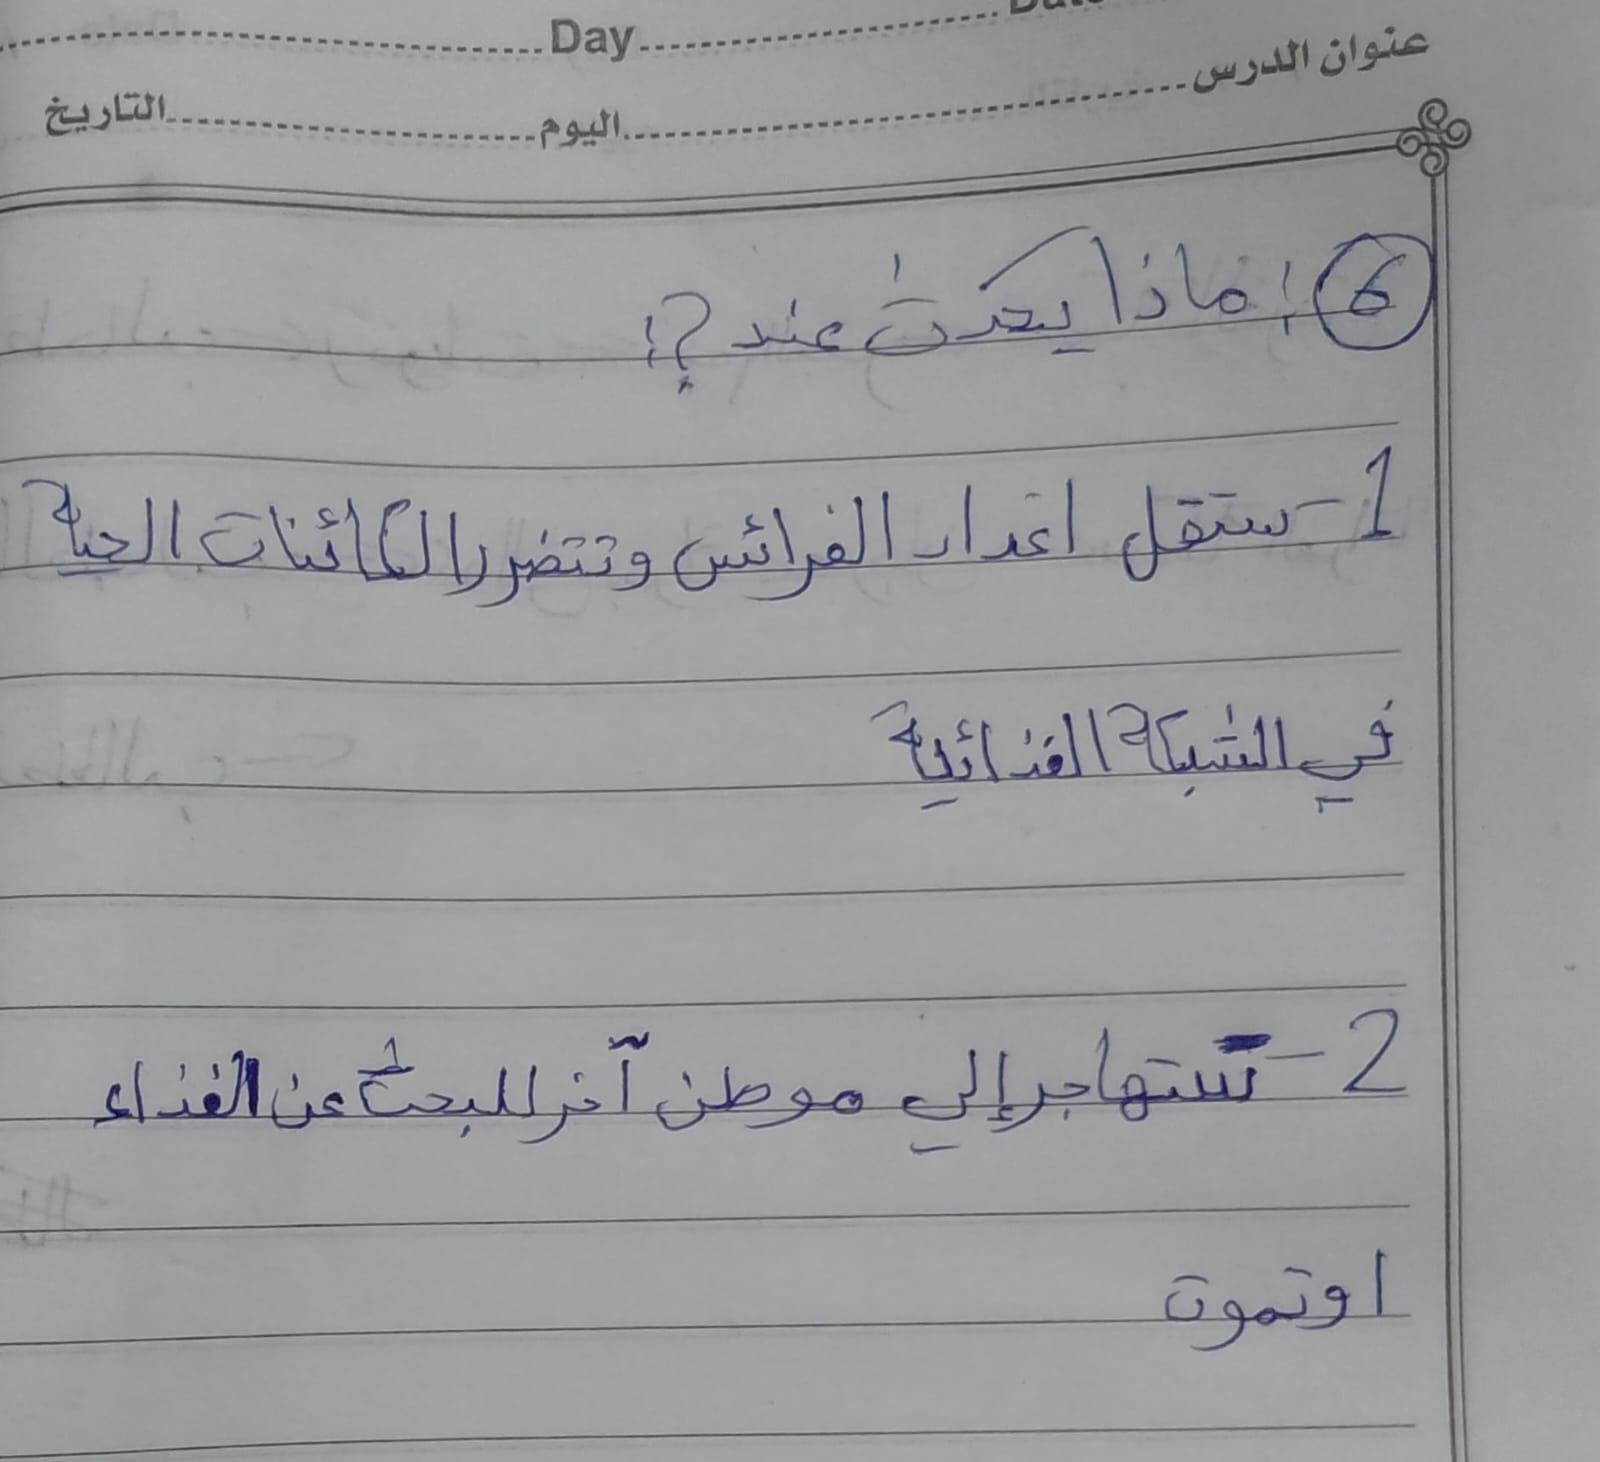 Day
عنوان الدرس اليوم التاريخ
6 ماذا يحدث عند ؟!
1- ستقل اعداد الفرائس وتتضرر الكائنات الحية
في الشبكة الغذائية
2- ستهاجر إلي موطن آخر للبحث عن الغذاء
او تموت